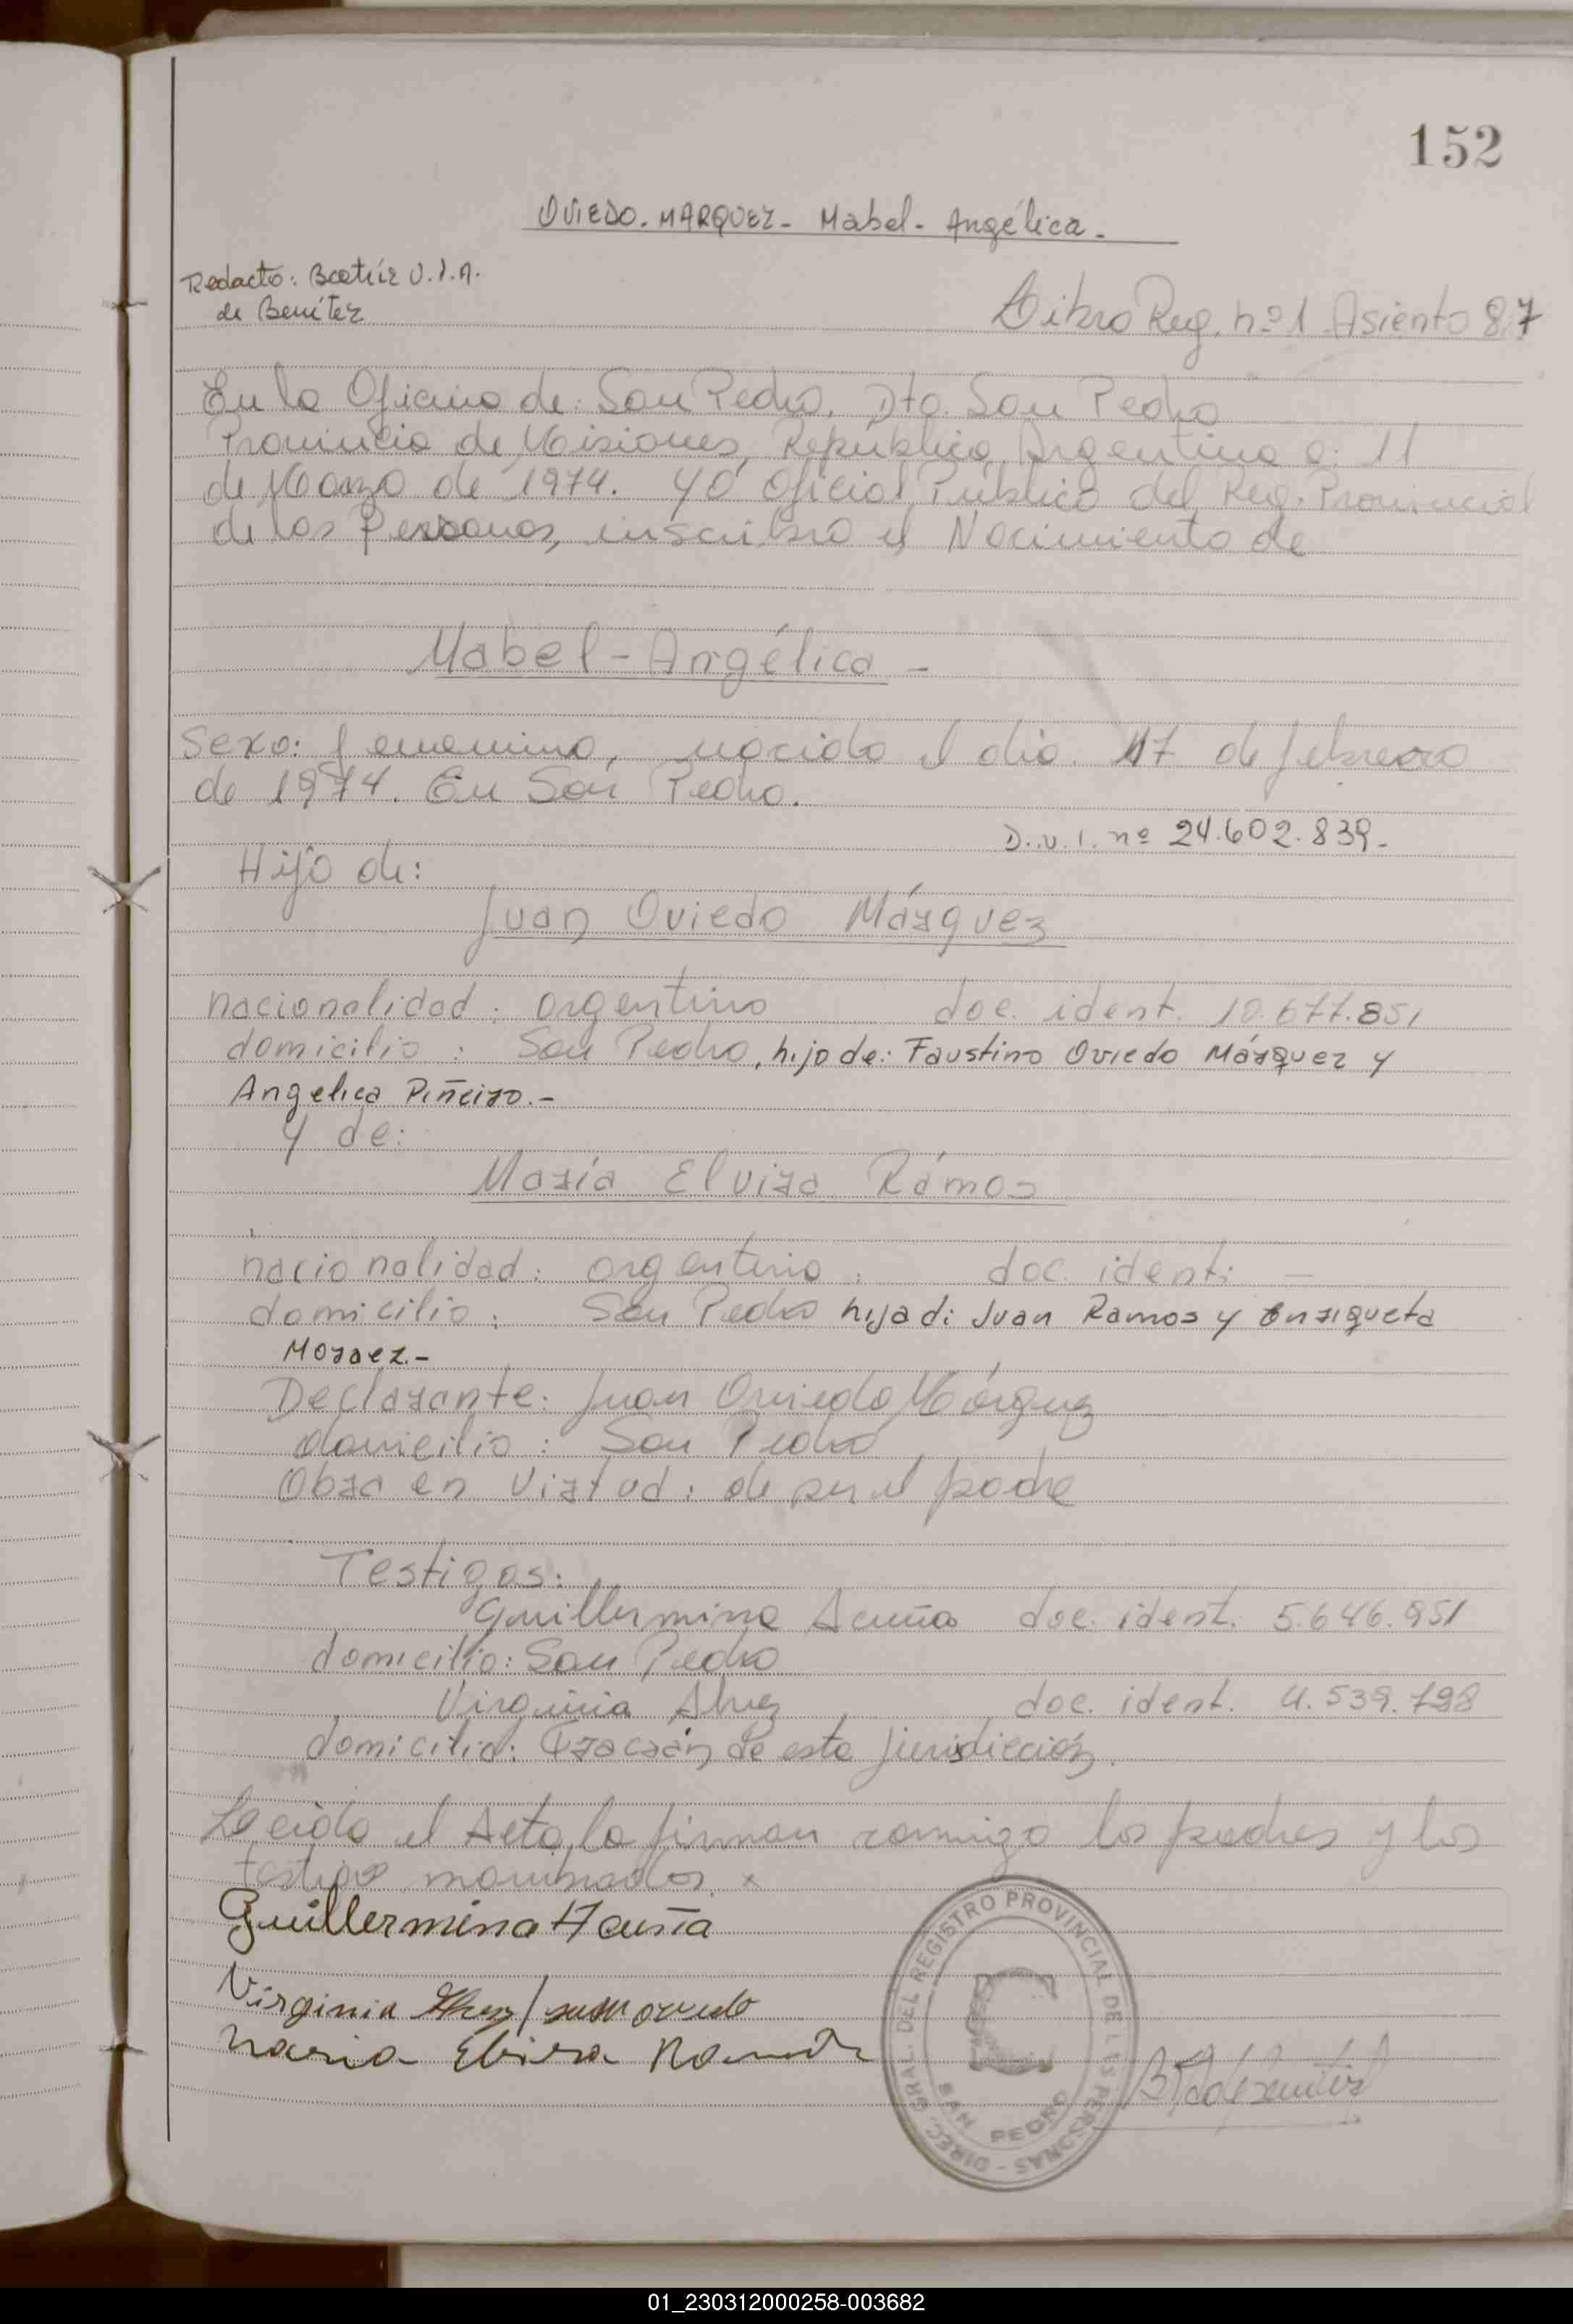 152
OVIEDO. MARQUEZ- Mabel- Angélica-
Redacto: Beatriz V. I. A.
de Benítez
Libro Reg. nº 1 Asiento 87
En la Oficina de: San Pedro. Dto. San Pedro
Provincia de Misiones, República Argentina a: 11
de Marzo de 1974. yo Oficial Público del Reg. Provincial
de las Personas, inscribo el Nacimiento de
Mabel-Angélica-
Sexo: femenino, nacida el dia. 17 de febrero
de 1974. En San Pedro.
D.N.I. nº 24.602.839-
Hijo de:
Juan Oviedo Márquez
nacionalidad: argentino doc. ident. 10.677.851
domicilio: San Pedro, hijo de: Faustino Oviedo Márquez y
Angelica Piñeiro.-
y de:
María Elvira Rámos
nacionalidad: argentino. doc. ident: —
domicilio: San Pedro hija di Juan Ramos y Enriqueta
Moraez.-
Declarante: Juan Oviedo Márquez
domicilio: San Pedro
Obra en Virtud: de ser el padre
Testigos:
Guillermina Acuña doc. ident. 5.646.951
domicilio: San Pedro
Virginia Alvez doc. ident. 4.539.798
domicilio: de esta jurisdicción.
Leida el Acta, la firman conmigo los padres y los
testigos nombrados. x
Guillermina Acuña
Virginia Alvez / Juan oviedo
Maria Elvira Ramos
DIREC. GRAL. DEL REGISTRO PROVINCIAL DE LAS PERSONAS -
SAN PEDRO
01_230312000258-003682